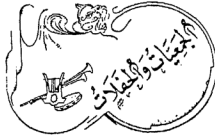 الجَمعيَّاتُ وَالحَفَلَاتُ